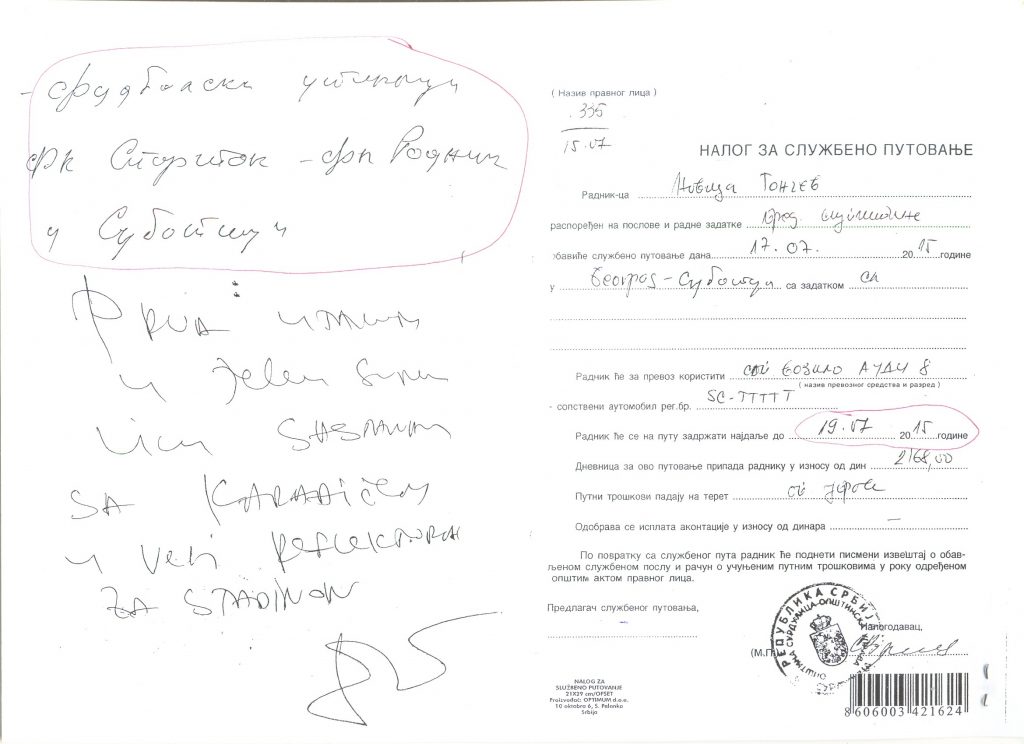 - фудбалски утакмици
ФК
у Суботици
PRVA
u Jelen Super
SASTANAK
SA KARADIĆEM
u VEZI REFLEKTORA
ZA STADION
( Назив правног лица )
335
15.07
НАЛОГ ЗА СЛУЖБЕНО ПУТОВАЊЕ
Радник-ца Новица Тончев
распоређен на послове и радне задатке пред. скупштине
обавиће службено путовање дана 17.07. 2015 године
у Београд - Суботица са задатком
Радник ће за превоз користити сл. возило АУДИ 8
( назив превозног средства и разред )
- сопствени аутомобил рег.бр. SC-TTTTT
Радник ће се на путу задржати најдаље до 19.07 2015 године
Дневница за ово путовање припада раднику у износу од дин 2168,00
Путни трошкови падају на терет
Одобрава се исплата аконтације у износу од динара —
По повратку са службеног пута радник ће поднети писмени извештај о обав-
љеном службеном послу и рачун о учуњеним путним трошковима у року одређеном
општим актом правног лица.
Предлагач службеног путовања,
Налогодавац,
(М.П.)
РЕПУБЛИКА СРБИЈА
ОПШТИНА СУРДУЛИЦА-ОПШТИНСКА
НАЛОГ ЗА
SLUŽBENO PUTOVANJE
21X29 cm/OFSET
Proizvođač: OPTIMUM d.o.o.
10 oktobra 6, S. Palanka
Srbija
8606003421624